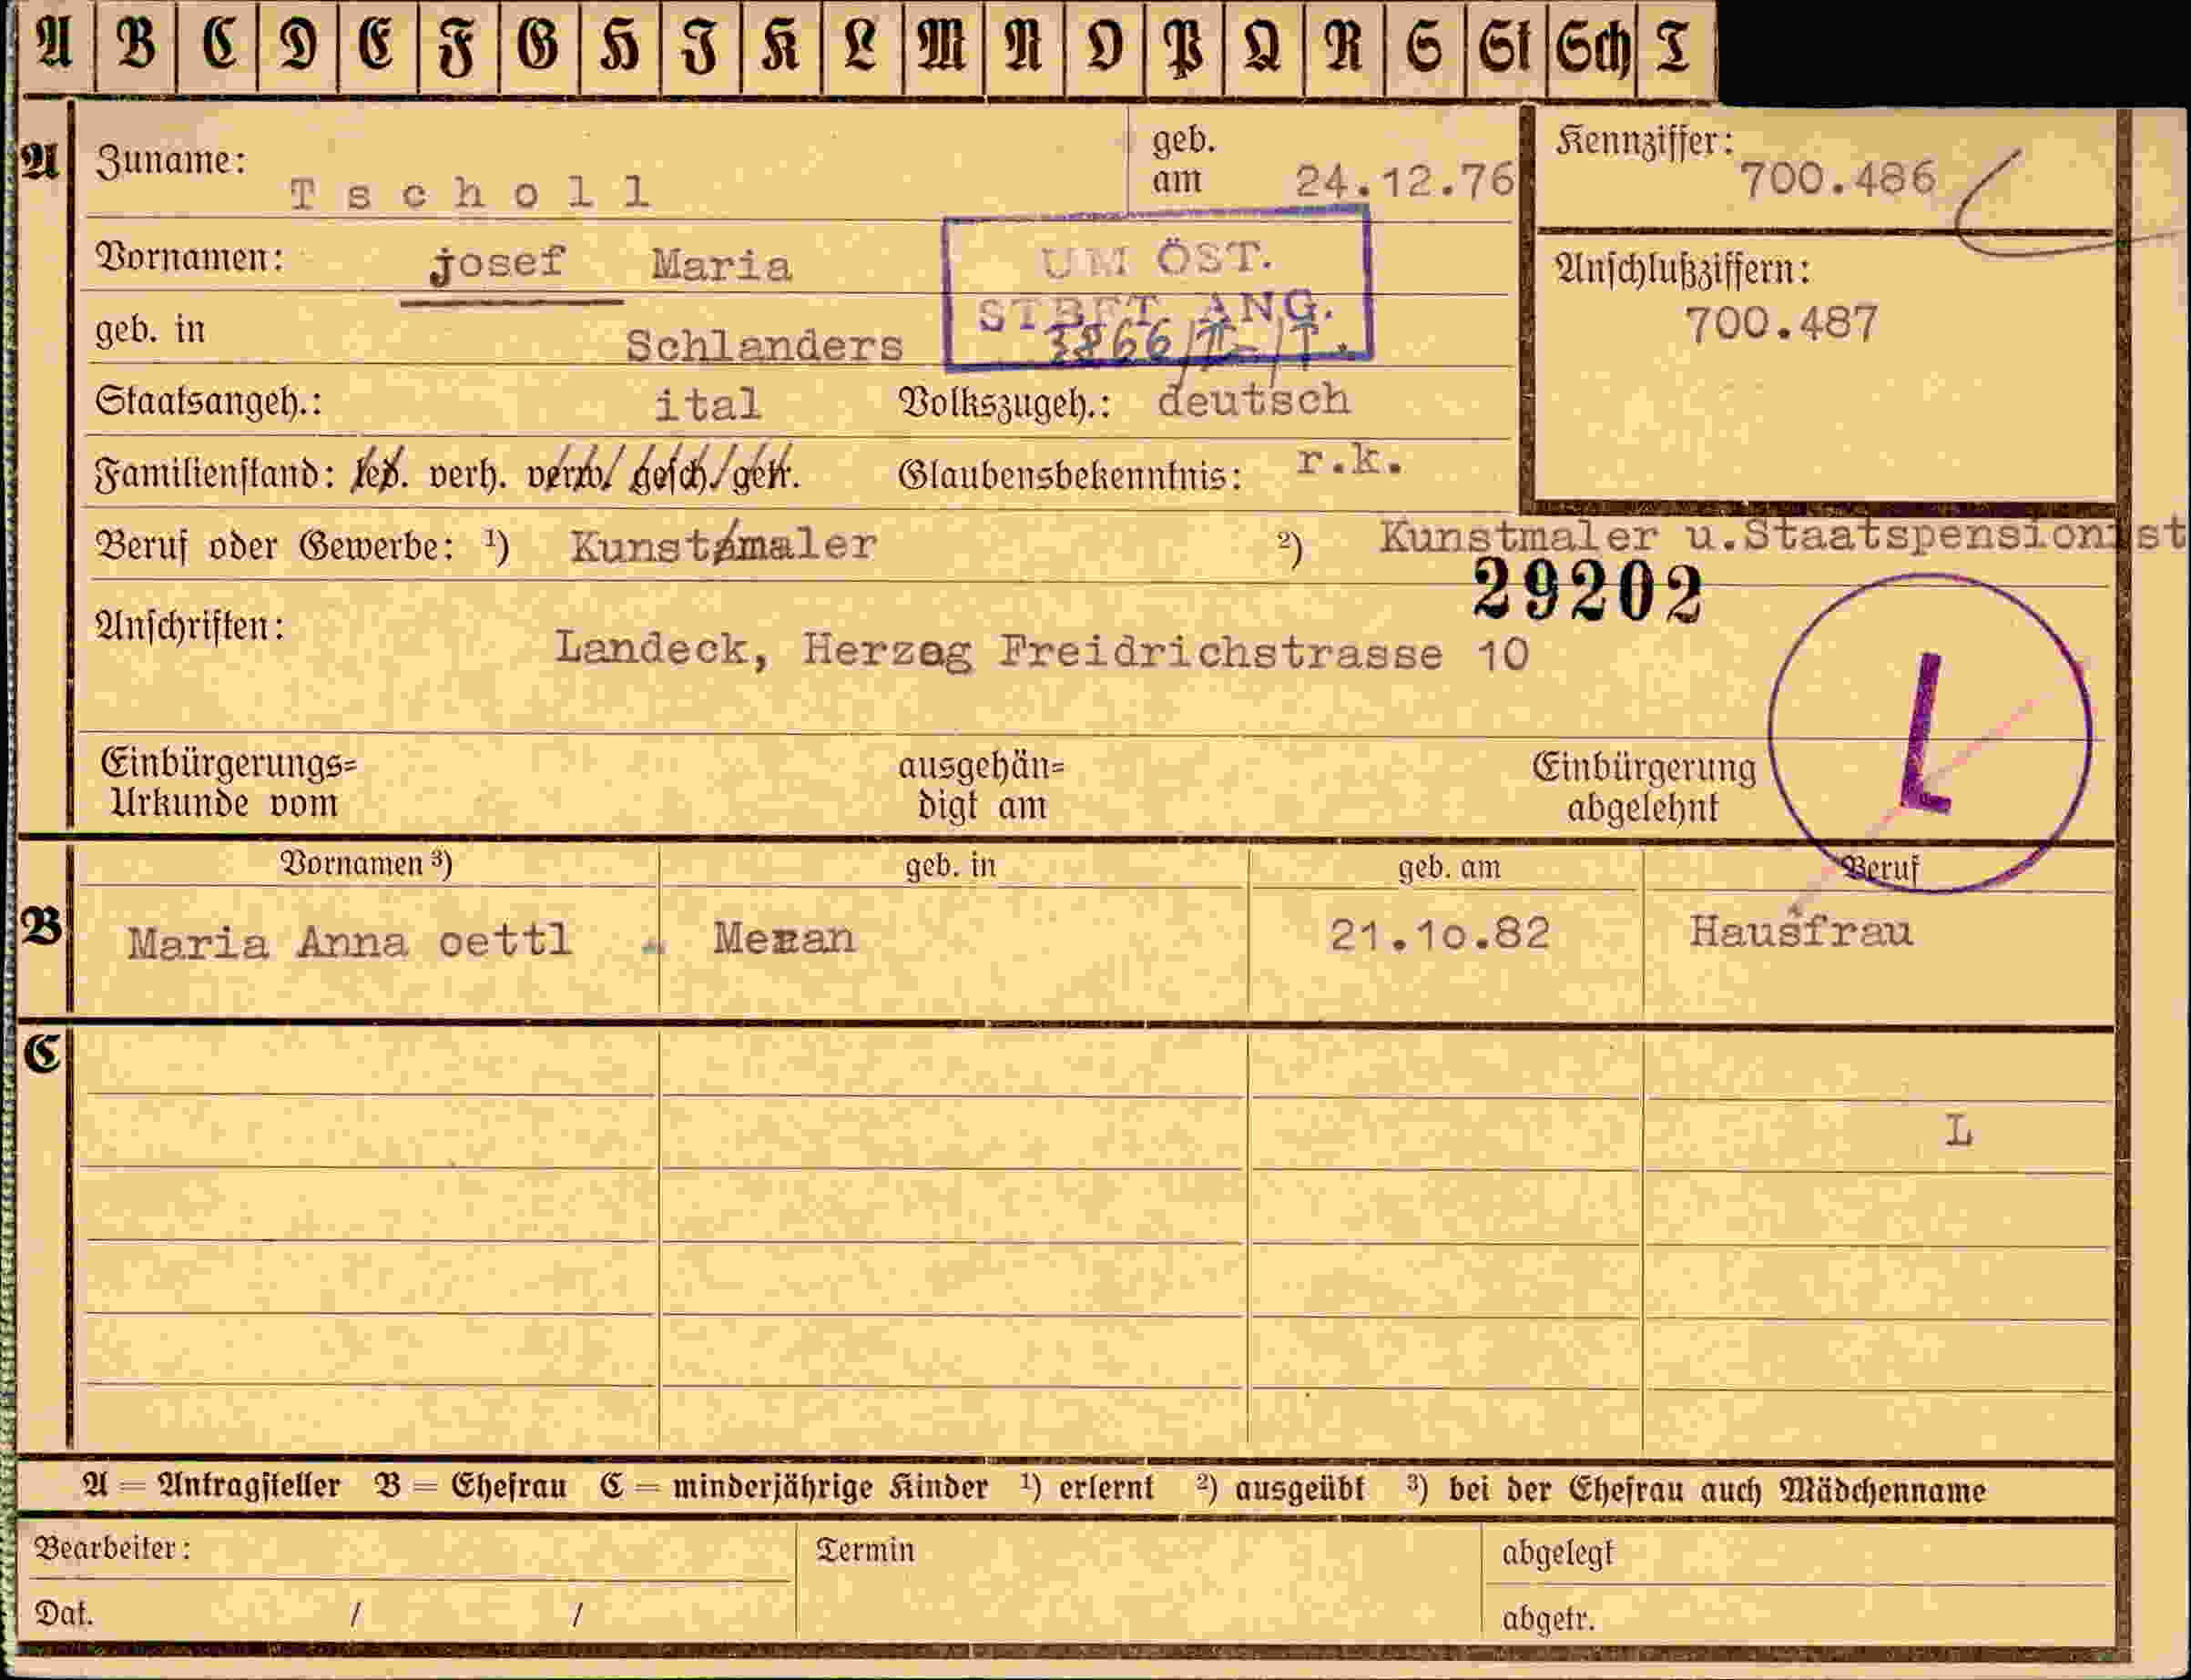 A B C D E F G H J K L M N O P Q R S St Sch T
A
Zuname: Tscholl
geb. am 24.12.76
Kennziffer: 700.486
Vornamen: josef Maria
UM ÖST.
STBFT ANG.
Anschlußziffern:
700.487
geb. in Schlanders
Staatsangeh.: ital Volkszugeh.: deutsch
Familienstand: led. verh. verw. gesch. getr. Glaubensbekenntnis: r.k.
Beruf oder Gewerbe: ¹) Kunstmaler ²) Kunstmaler u.Staatspensionist
29202
Anschriften: Landeck, Herzog Freidrichstrasse 10
L
Einbürgerungs=
Urkunde vom
ausgehän=
digt am
Einbürgerung
abgelehnt
Vornamen ³) geb. in geb. am Beruf
B
Maria Anna oettl Meran 21.10.82 Hausfrau
C
L
A = Antragsteller B = Ehefrau C = minderjährige Kinder ¹) erlernt ²) ausgeübt ³) bei der Ehefrau auch Mädchenname
Bearbeiter: Termin abgelegt
Dat. / / abgetr.